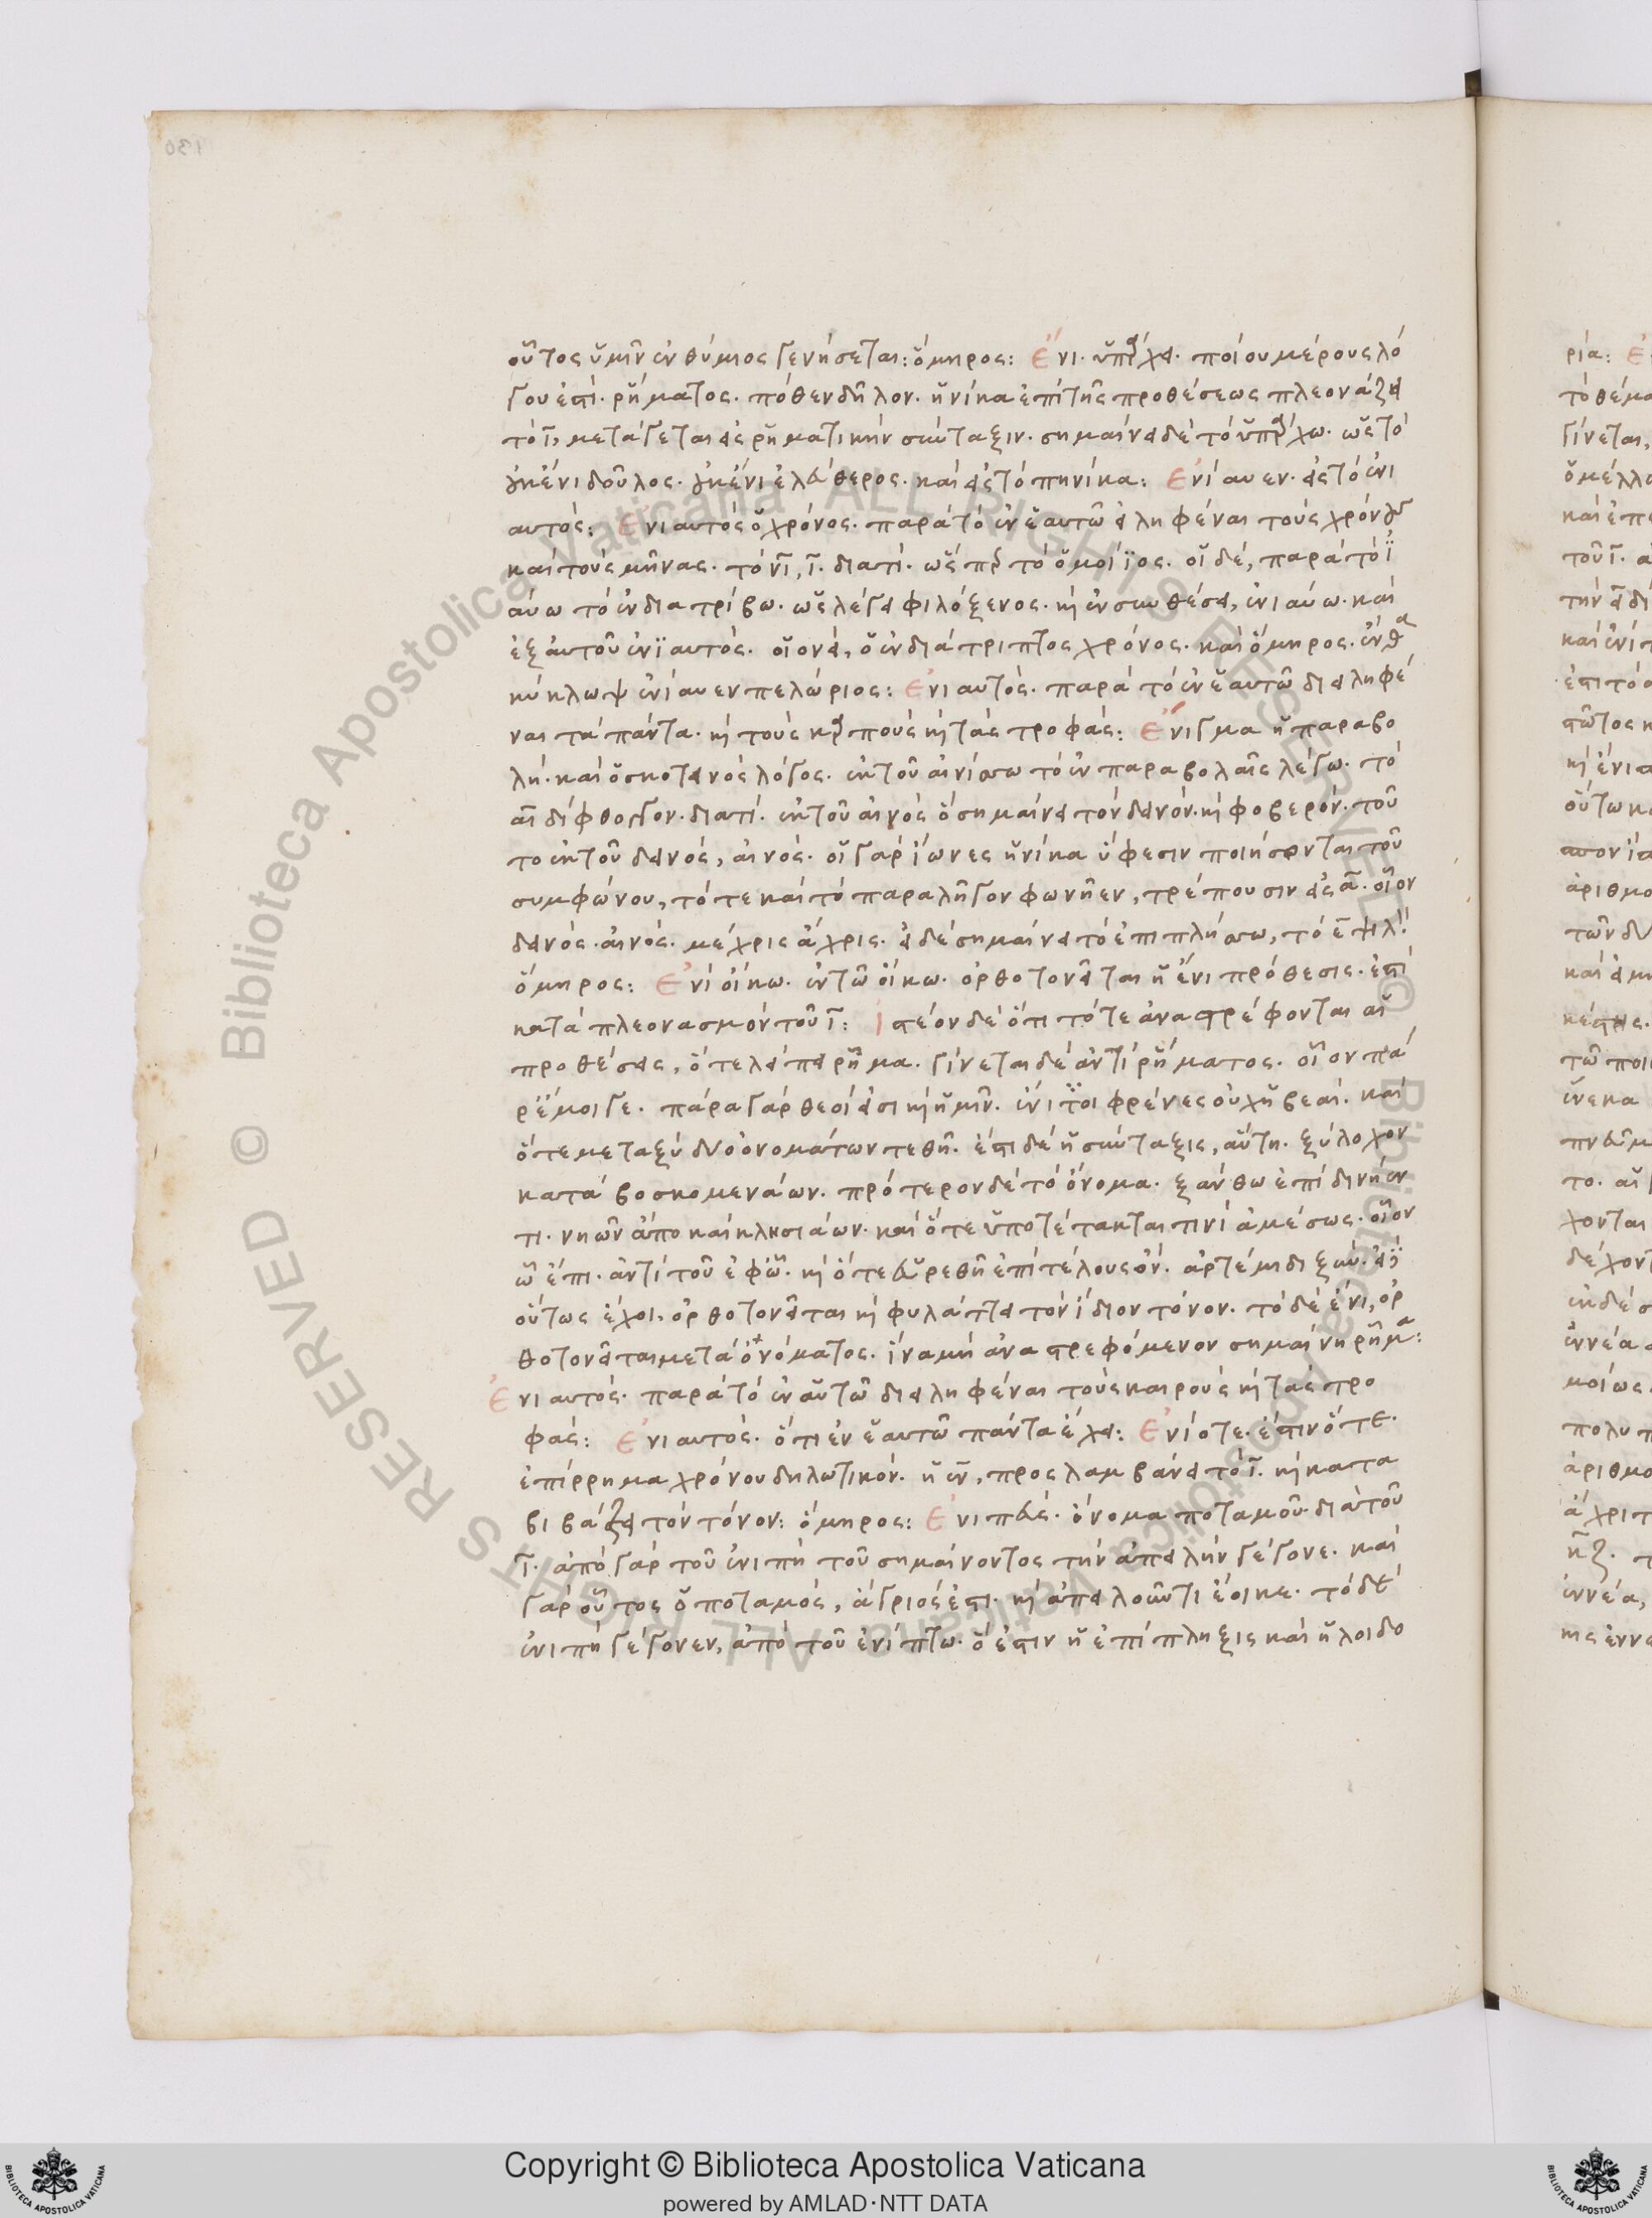 οὗτος ὑμῖν ἐνθύμιος γενήσεται: ὅμηρος: Ἔνι. ὑπάρχει. ποίου μέρους λό
γου ἐστί. ῥήματος. πόθεν δῆλον. ἡνίκα ἐπὶ τῆς προθέσεως πλεονάζει
τὸ ῑ, μετάγεται εἰς ῥηματικὴν σύνταξιν. σημαίνει δὲ τὸ ὑπάρχω. ὡς τὸ
οὐκ ἔνι δοῦλος. οὐκ ἔνι ἐλεύθερος. καὶ εἰς τὸ πηνίκα: Ἐνίαυεν. εἰς τὸ ἐνι
αυτός: Ἐνιαυτὸς ὁ χρόνος. παρὰ τὸ ἐν ἑαυτῶ εἰληφέναι τοὺς χρόνους
καὶ τοὺς μῆνας. τὸ νῑ, ῑ. διατί. ὥσπερ τὸ ὁμοίϊος. οἱ δὲ, παρὰ τὸ ἰ
αύω τὸ ἐνδιατρίβω. ὡς λέγει φιλόξενος. κỳ ἐν συνθέσει, ἐνιαύω. καὶ
ἐξ αὐτοῦ ἐνϊαυτός. οἱονεὶ, ὁ ἐνδιάτριπτος χρόνος. καὶ ὅμηρος. ἔνθα
κύκλωψ ἐνίαυεν πελώριος: Ἐνιαυτός. παρὰ τὸ ἐν ἑαυτῶ διειληφέ
ναι τὰ πάντα. κỳ τοὺς καρποὺς κỳ τὰς τροφάς: Ἔνιγμα ἡ παραβο
λή. καὶ ὁ σκοτεινὸς λόγος. ἐκ τοῦ αἰνίσσω τὸ ἐν παραβολαῖς λέγω. τὸ
αῑ δίφθογγον. διατί. ἐκ τοῦ αἰνὸς ὃ σημαίνει τὸν δεινόν. κỳ φοβερόν. τοῦ
το ἐκ τοῦ δεινός, αἰνός. οἱ γὰρ ἴωνες ἡνίκα ὕφεσιν ποιήσονται τοῦ
συμφώνου, τότε καὶ τὸ παραλῆγον φωνῆεν, τρέπουσιν εἰς ᾱ. οἷον
δεινός. αἰνός. μέχρις ἄχρις. εἰ δὲ σημαίνει τὸ ἐπιπλήσσω, τὸ ε̄ ψιλ.
ὅμηρος: Ἐνὶ οἴκω. ἐν τῶ οἴκω. ὀρθοτονεῖται ἡ ἔνι πρόθεσις. ἐπὶ
κατὰ πλεονασμὸν τοῦ ῑ: Ἰστέον δὲ ὅτι τότε ἀναστρέφονται αἱ
προθέσεις, ὅτε λείπει ῥῆμα. γίνεται δὲ ἀντὶ ῥήματος. οἷον πά
ρ ἔμοιγε. πάρα γὰρ θεοί εἰσι κỳ ἡμῖν. ἔνι τοι φρένες οὐχ ἡβεαί. καὶ
ὅτε μεταξὺ δύο ὀνομάτων τεθῆ. ἔστι δὲ ἡ σύνταξις, αὕτη. ξύλοχον
κατὰ βοσκομενάων. πρότερον δὲ τὸ ὄνομα. ξάνθω ἐπὶ δινήεν
τι. νηῶν ἄπο καὶ κλισιάων. καὶ ὅτε ὑποτέτακται τινὶ ἀμέσως. οἷον
ὧ ἔπι. ἀντὶ τοῦ ἐφ' ὧ. κỳ ὅτε εὑρεθῆ ἐπὶ τέλους ὄν. ἀρτέμιδι ξύν. εἰ
οὕτως ἔχοι, ὀρθοτονεῖται κỳ φυλάττει τὸν ἴδιον τόνον. τὸ δὲ ἐνὶ, ὀρ
θοτονεῖται μετὰ ὀνόματος. ἵνα μὴ ἀναστρεφόμενον σημαίνη ῥῆμα:
Ἐνιαυτός. παρὰ τὸ ἐν αὑτῶ διειληφέναι τοὺς καιροὺς κỳ τὰς τρο
φάς: Ἐνιαυτός. ὅτι ἐν ἑαυτῶ πάντα ἔχει: Ἐνίοτε. ἔστιν ὅτε.
ἐπίρρημα χρόνου δηλωτικόν. ἡ ἐν, προσλαμβάνει τὸ ῑ. κỳ κατα
βιβάζει τὸν τόνον: ὅμηρος: Ἐνιπεύς. ὄνομα ποταμοῦ διὰ τοῦ
ῑ. ἀπὸ γὰρ τοῦ ἐνιπὴ τοῦ σημαίνοντος τὴν ἀπειλὴν γέγονε. καὶ
γὰρ οὗτος ὁ ποταμός, ἄγριός ἐστι. κỳ ἀπειλοῦντι ἔοικε. τὸ δὲ
ἐνιπὴ γέγονεν, ἀπὸ τοῦ ἐνίπτω. ὅ ἐστιν ἡ ἐπίπληξις καὶ ἡ λοιδο
Copyright © Biblioteca Apostolica Vaticana
powered by AMLAD·NTT DATA